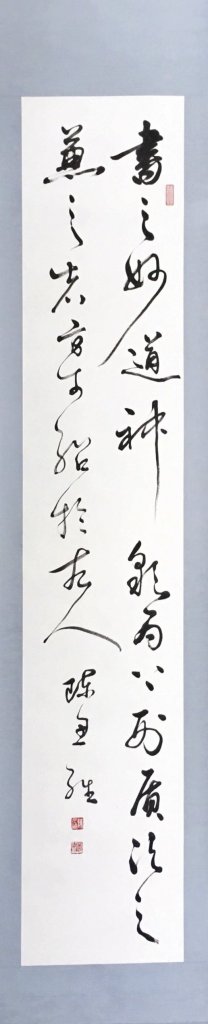 書之妙道神彩為上形質次之
兼之者方可紹於古人 陳